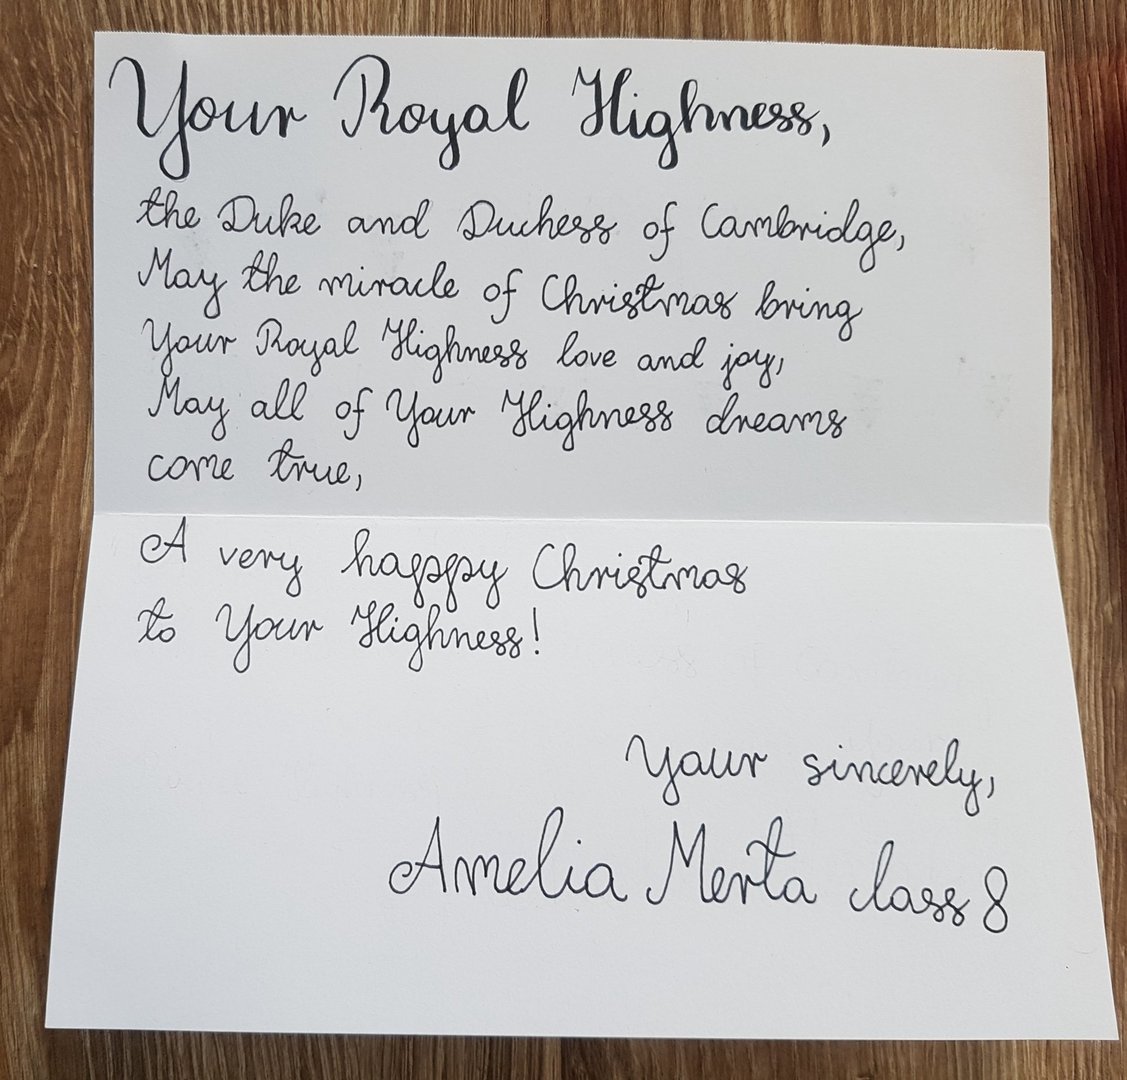 Your Royal Highness,
the Duke and Duchess of Cambridge,
May the miracle of Christmas bring
Your Royal Highness love and joy,
May all of Your Highness dreams
come true,
A very happy Christmas
to Your Highness!
Your sincerely,
Amelia Merta class 8